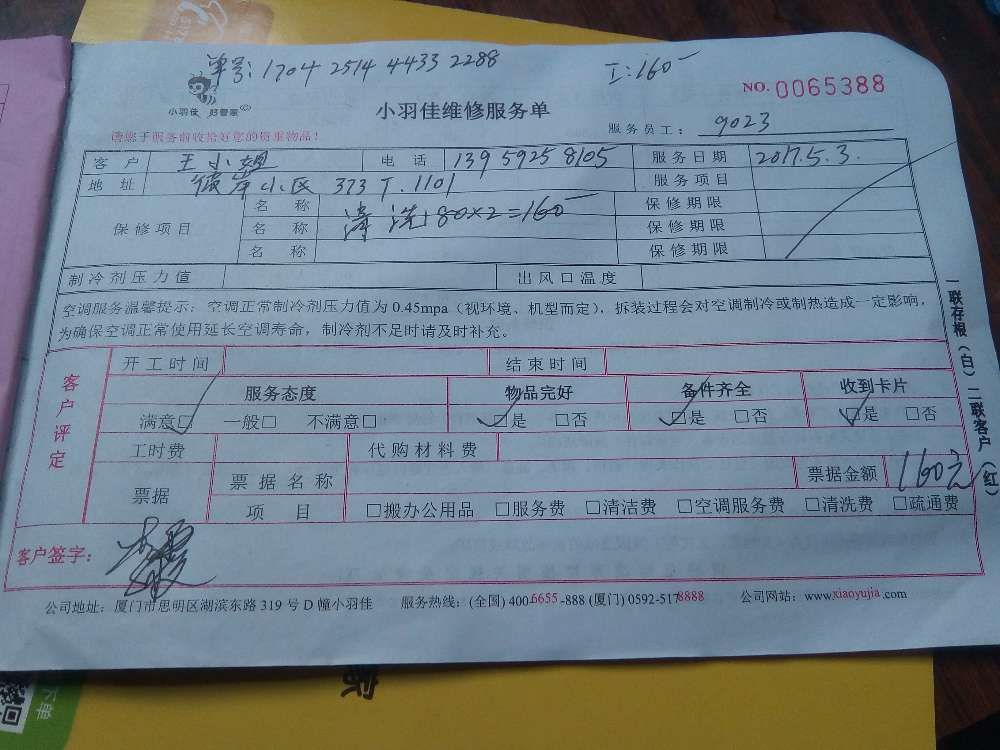 单号: 1704 2514 4433 2288
工:160
NO. 0065388
小羽佳 好管家
小羽佳维修服务单
服务员工: 9023
请您于服务前收拾好您的贵重物品!
客户 王小姐 电话 139 5925 8105 服务日期 2017.5.3.
地址 彼岸小区 373 T.1101 服务项目
保修项目 名称 清洗180×2=160 保修期限
名称 保修期限
名称 保修期限
制冷剂压力值 出风口温度
空调服务温馨提示:空调正常制冷剂压力值为 0.45mpa(视环境、机型而定),拆装过程会对空调制冷或制热造成一定影响,
为确保空调正常使用延长空调寿命,制冷剂不足时请及时补充。
一联存根(白)二联客户(红)
客户评定
开工时间 结束时间
服务态度 物品完好 备件齐全 收到卡片
满意□ 一般□ 不满意□ □是 □否 □是 □否 □是 □否
工时费 代购材料费
票据 票据名称 票据金额 160元
项目 □搬办公用品 □服务费 □清洁费 □空调服务费 □清洗费 □疏通费
客户签字:
公司地址:厦门市思明区湖滨东路 319 号 D 幢小羽佳 服务热线:(全国) 400-6655-888 (厦门) 0592-5178888 公司网站:www.xiaoyujia.com
家
下单